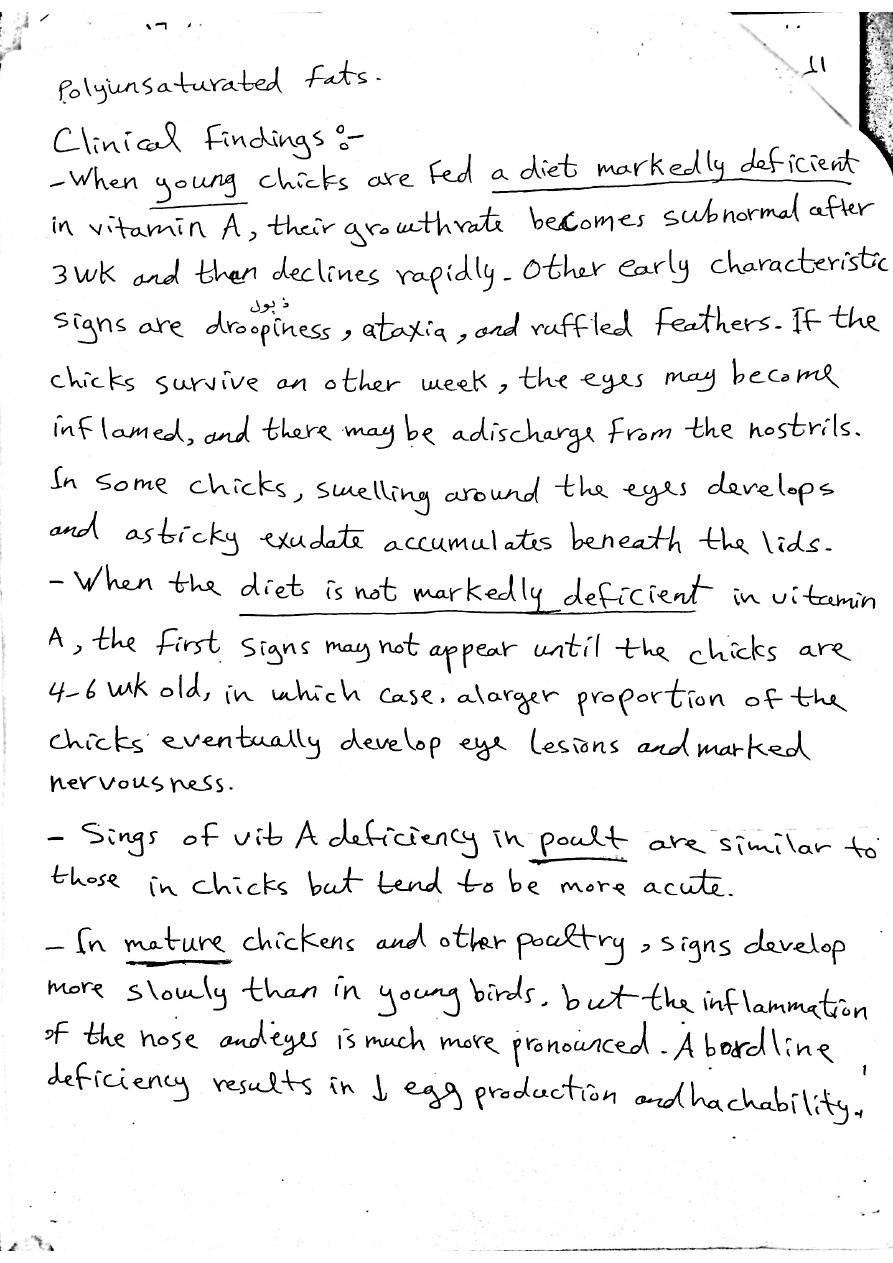 11
Polyunsaturated fats.
Clinical Findings :-
- When young chicks are Fed a diet markedly deficient
in vitamin A, their growthrate becomes subnormal after
3 wk and then declines rapidly. Other early characteristic
ذبول
signs are droopiness, ataxia, and ruffled feathers. If the
chicks survive an other week, the eyes may become
inflamed, and there may be adischarge from the nostrils.
In some chicks, swelling around the eyes develops
and asticky exudate accumulates beneath the lids.
- When the diet is not markedly deficient in vitamin
A, the first signs may not appear until the chicks are
4-6 wk old, in which case, alarger proportion of the
chicks eventually develop eye lesions and marked
nervousness.
- Sings of vit A deficiency in poult are similar to
those in chicks but tend to be more acute.
- In mature chickens and other poultry, signs develop
more slowly than in young birds, but the inflammation
of the nose and eyes is much more pronounced. A bordline
deficiency results in ↓ egg production and hachability.